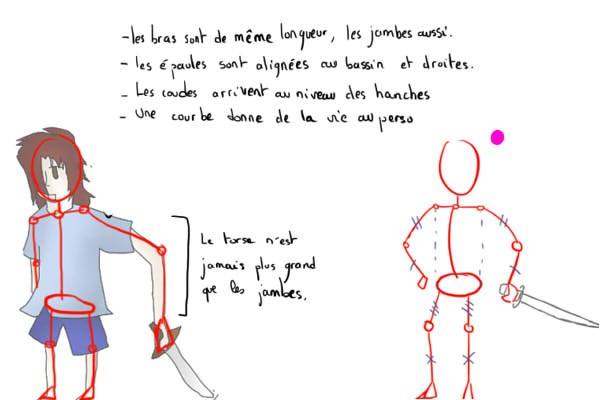 - les bras sont de même longueur, les jambes aussi.
- les épaules sont alignées au bassin et droites.
- Les coudes arrivent au niveau des hanches
- Une courbe donne de la vie au perso
Le torse n'est
jamais plus grand
que les jambes.